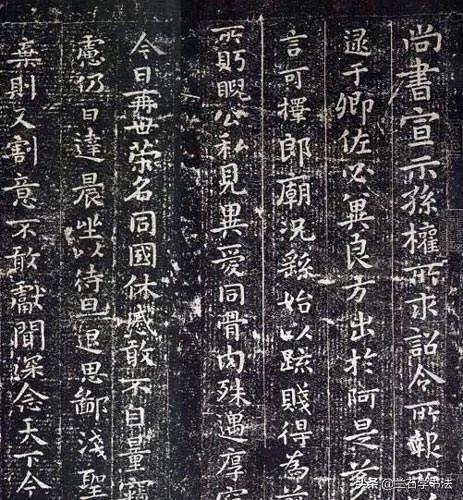 尚書宣示孫權所求詔令所報所
逮于卿佐必冀良方出於阿是芻
言可擇郎廟況繇始以疏賤得為
所眄睨公私見異愛同骨肉殊遇厚寵
今日再世榮名同國休慼敢不自量竊
慮仍日達晨坐以待旦退思鄙淺聖
棄則又割意不敢獻聞深念天下今
头条 @兰石学书法